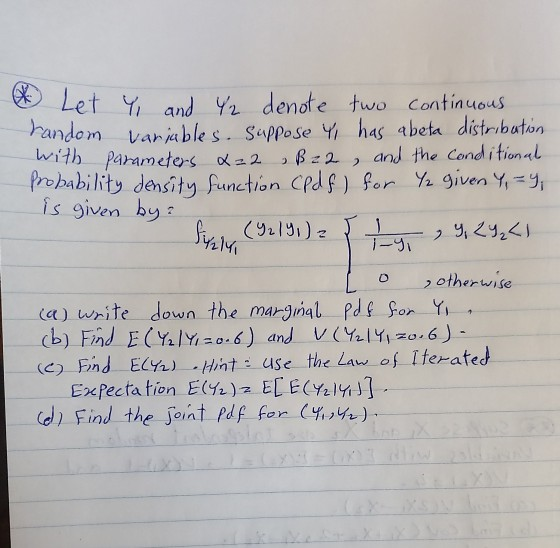 * Let Y₁ and Y₂ denote two continuous
random variables. Suppose Y₁ has a beta distribution
with parameters α=2, β=2, and the conditional
Probability density function (pdf) for Y₂ given Y₁=y₁
is given by:
f_{Y₂|Y₁}(y₂|y₁) = { 1/(1-y₁) , y₁<y₂<1
0 , otherwise
(a) write down the marginal pdf for Y₁.
(b) Find E(Y₂|Y₁=0.6) and V(Y₂|Y₁=0.6).
(c) Find E(Y₂). Hint: use the Law of Iterated
Expectation E(Y₂)=E[E(Y₂|Y₁)].
(d) Find the joint pdf for (Y₁,Y₂).